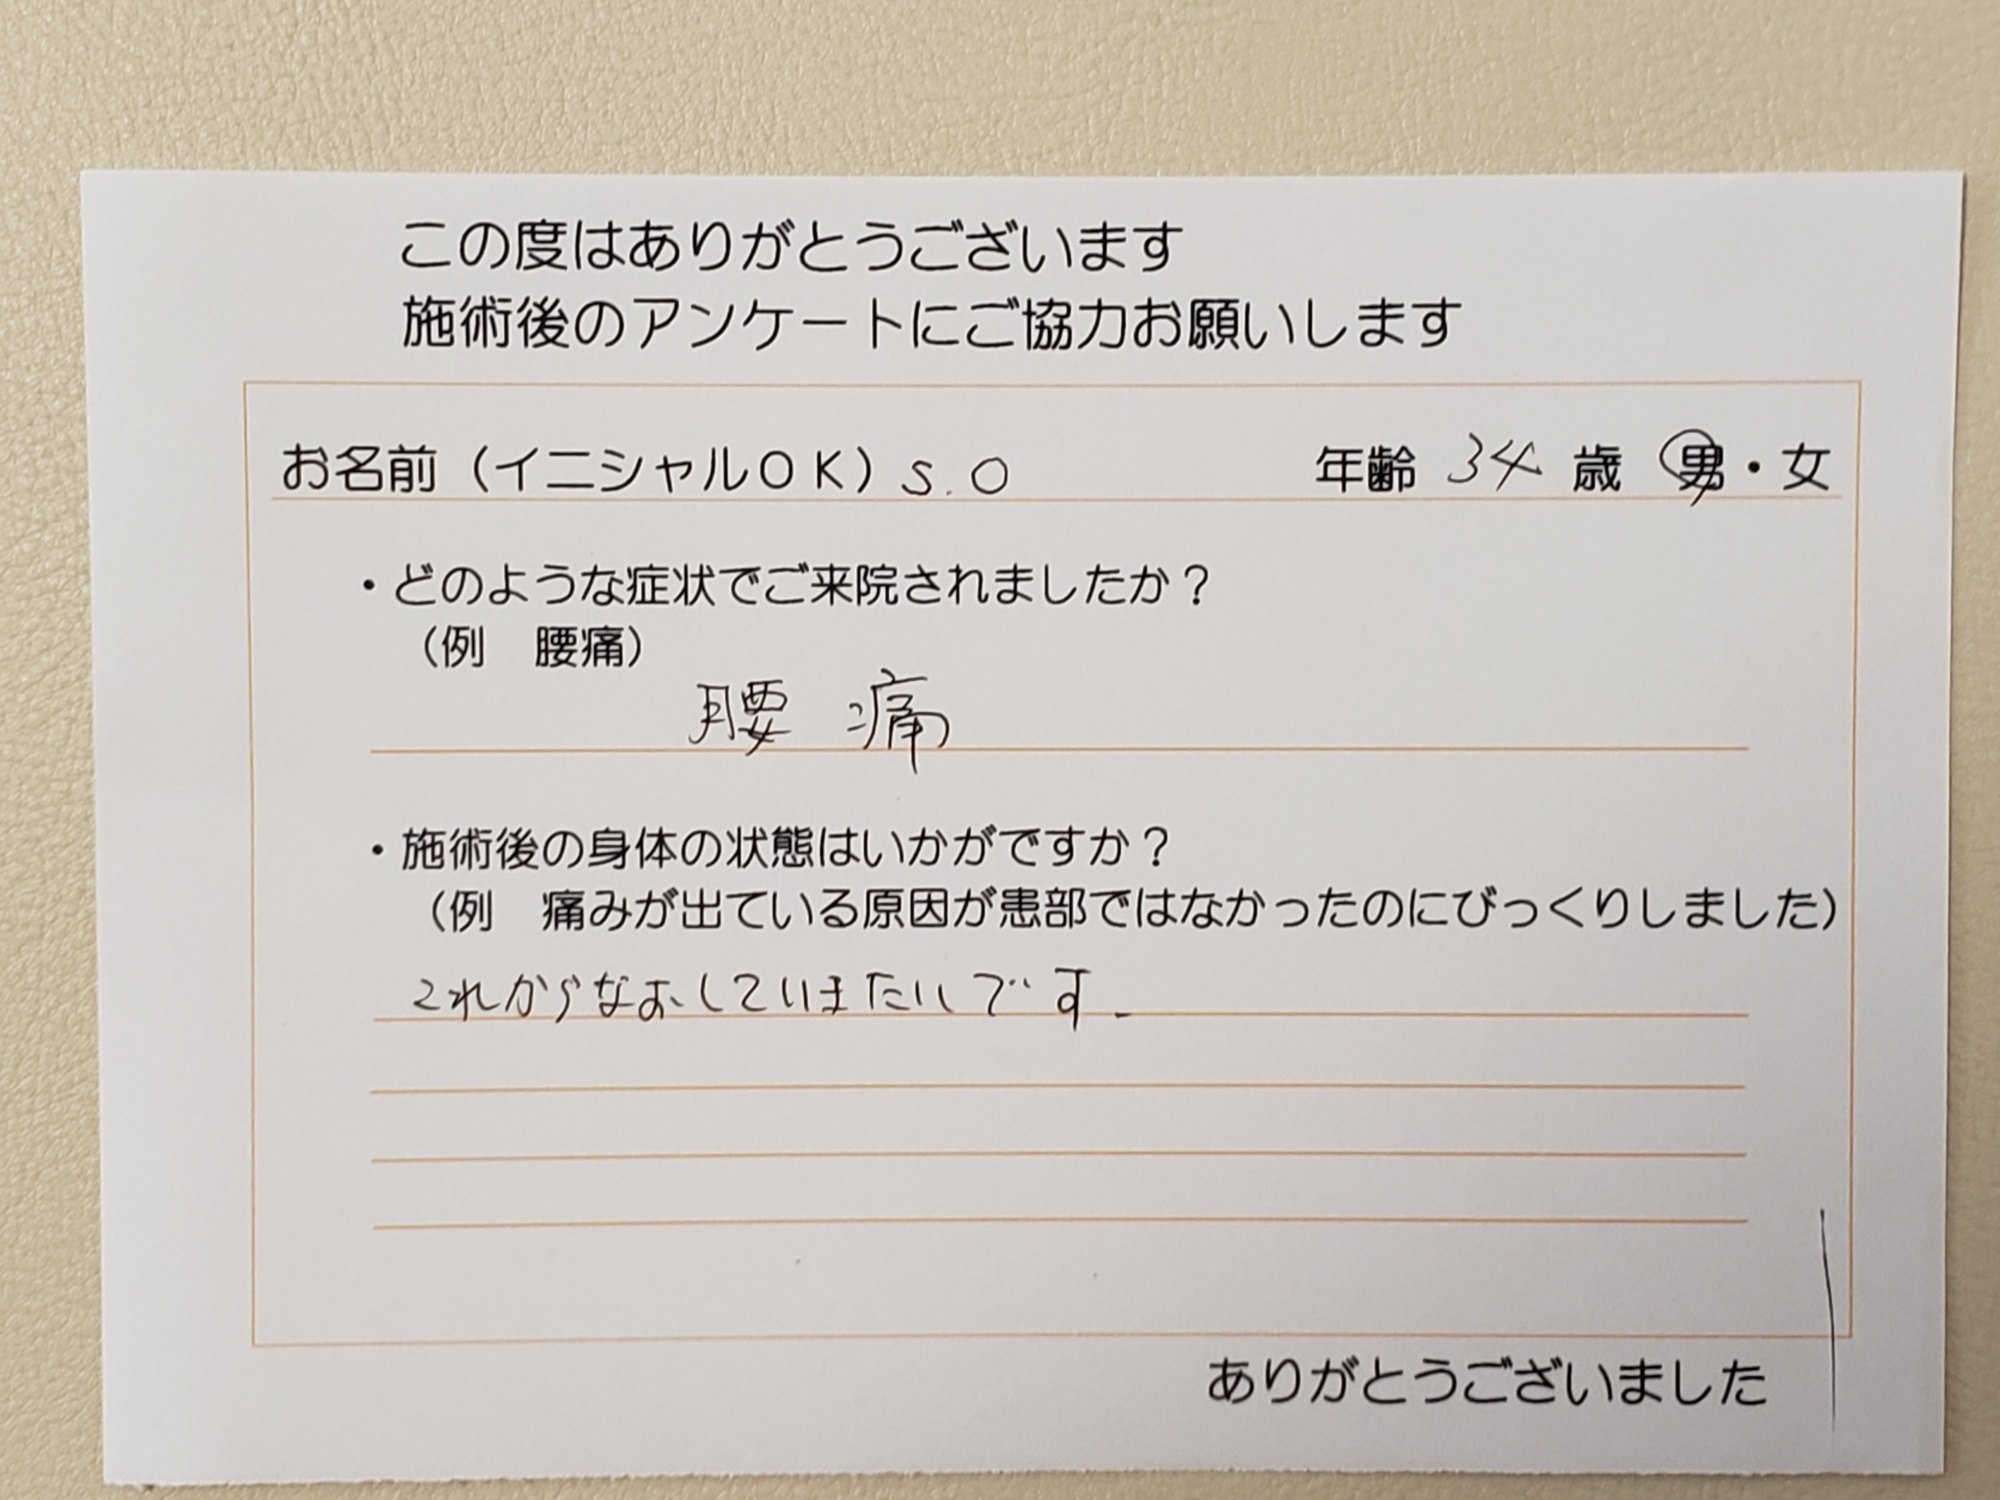 この度はありがとうございます
施術後のアンケートにご協力お願いします
お名前（イニシャルＯＫ）S.O 年齢 34 歳 男・女
・どのような症状でご来院されましたか？
（例　腰痛）
腰痛
・施術後の身体の状態はいかがですか？
（例　痛みが出ている原因が患部ではなかったのにびっくりしました）
これからなおしていきたいです。
ありがとうございました